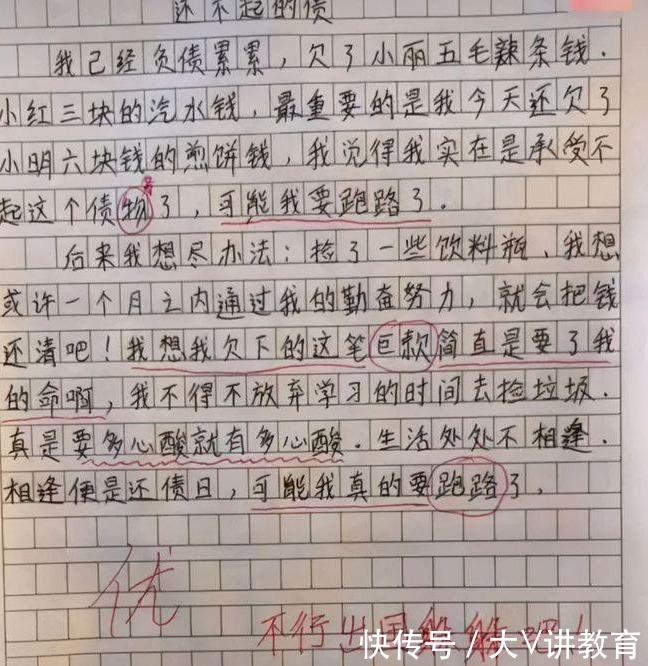 还不起的债
我已经负债累累，欠了小丽五毛辣条钱.
小红三块的汽水钱，最重要的是我今天还欠了
小明六块钱的煎饼钱，我觉得我实在是承受不
起这个债物了，可能我要跑路了.
务
后来我想尽办法：捡了一些饮料瓶、我想
或许一个月之内通过我的勤奋努力，就会把钱
还清吧！我想我欠下的这笔巨款简直是要了我
的命啊，我不得不放弃学习的时间去捡垃圾.
真是要多心酸就有多心酸.生活处处不相逢.
相逢便是还债日，可能我真的要跑路了，
优
不行出国躲躲吧！
快传号／大V讲教育